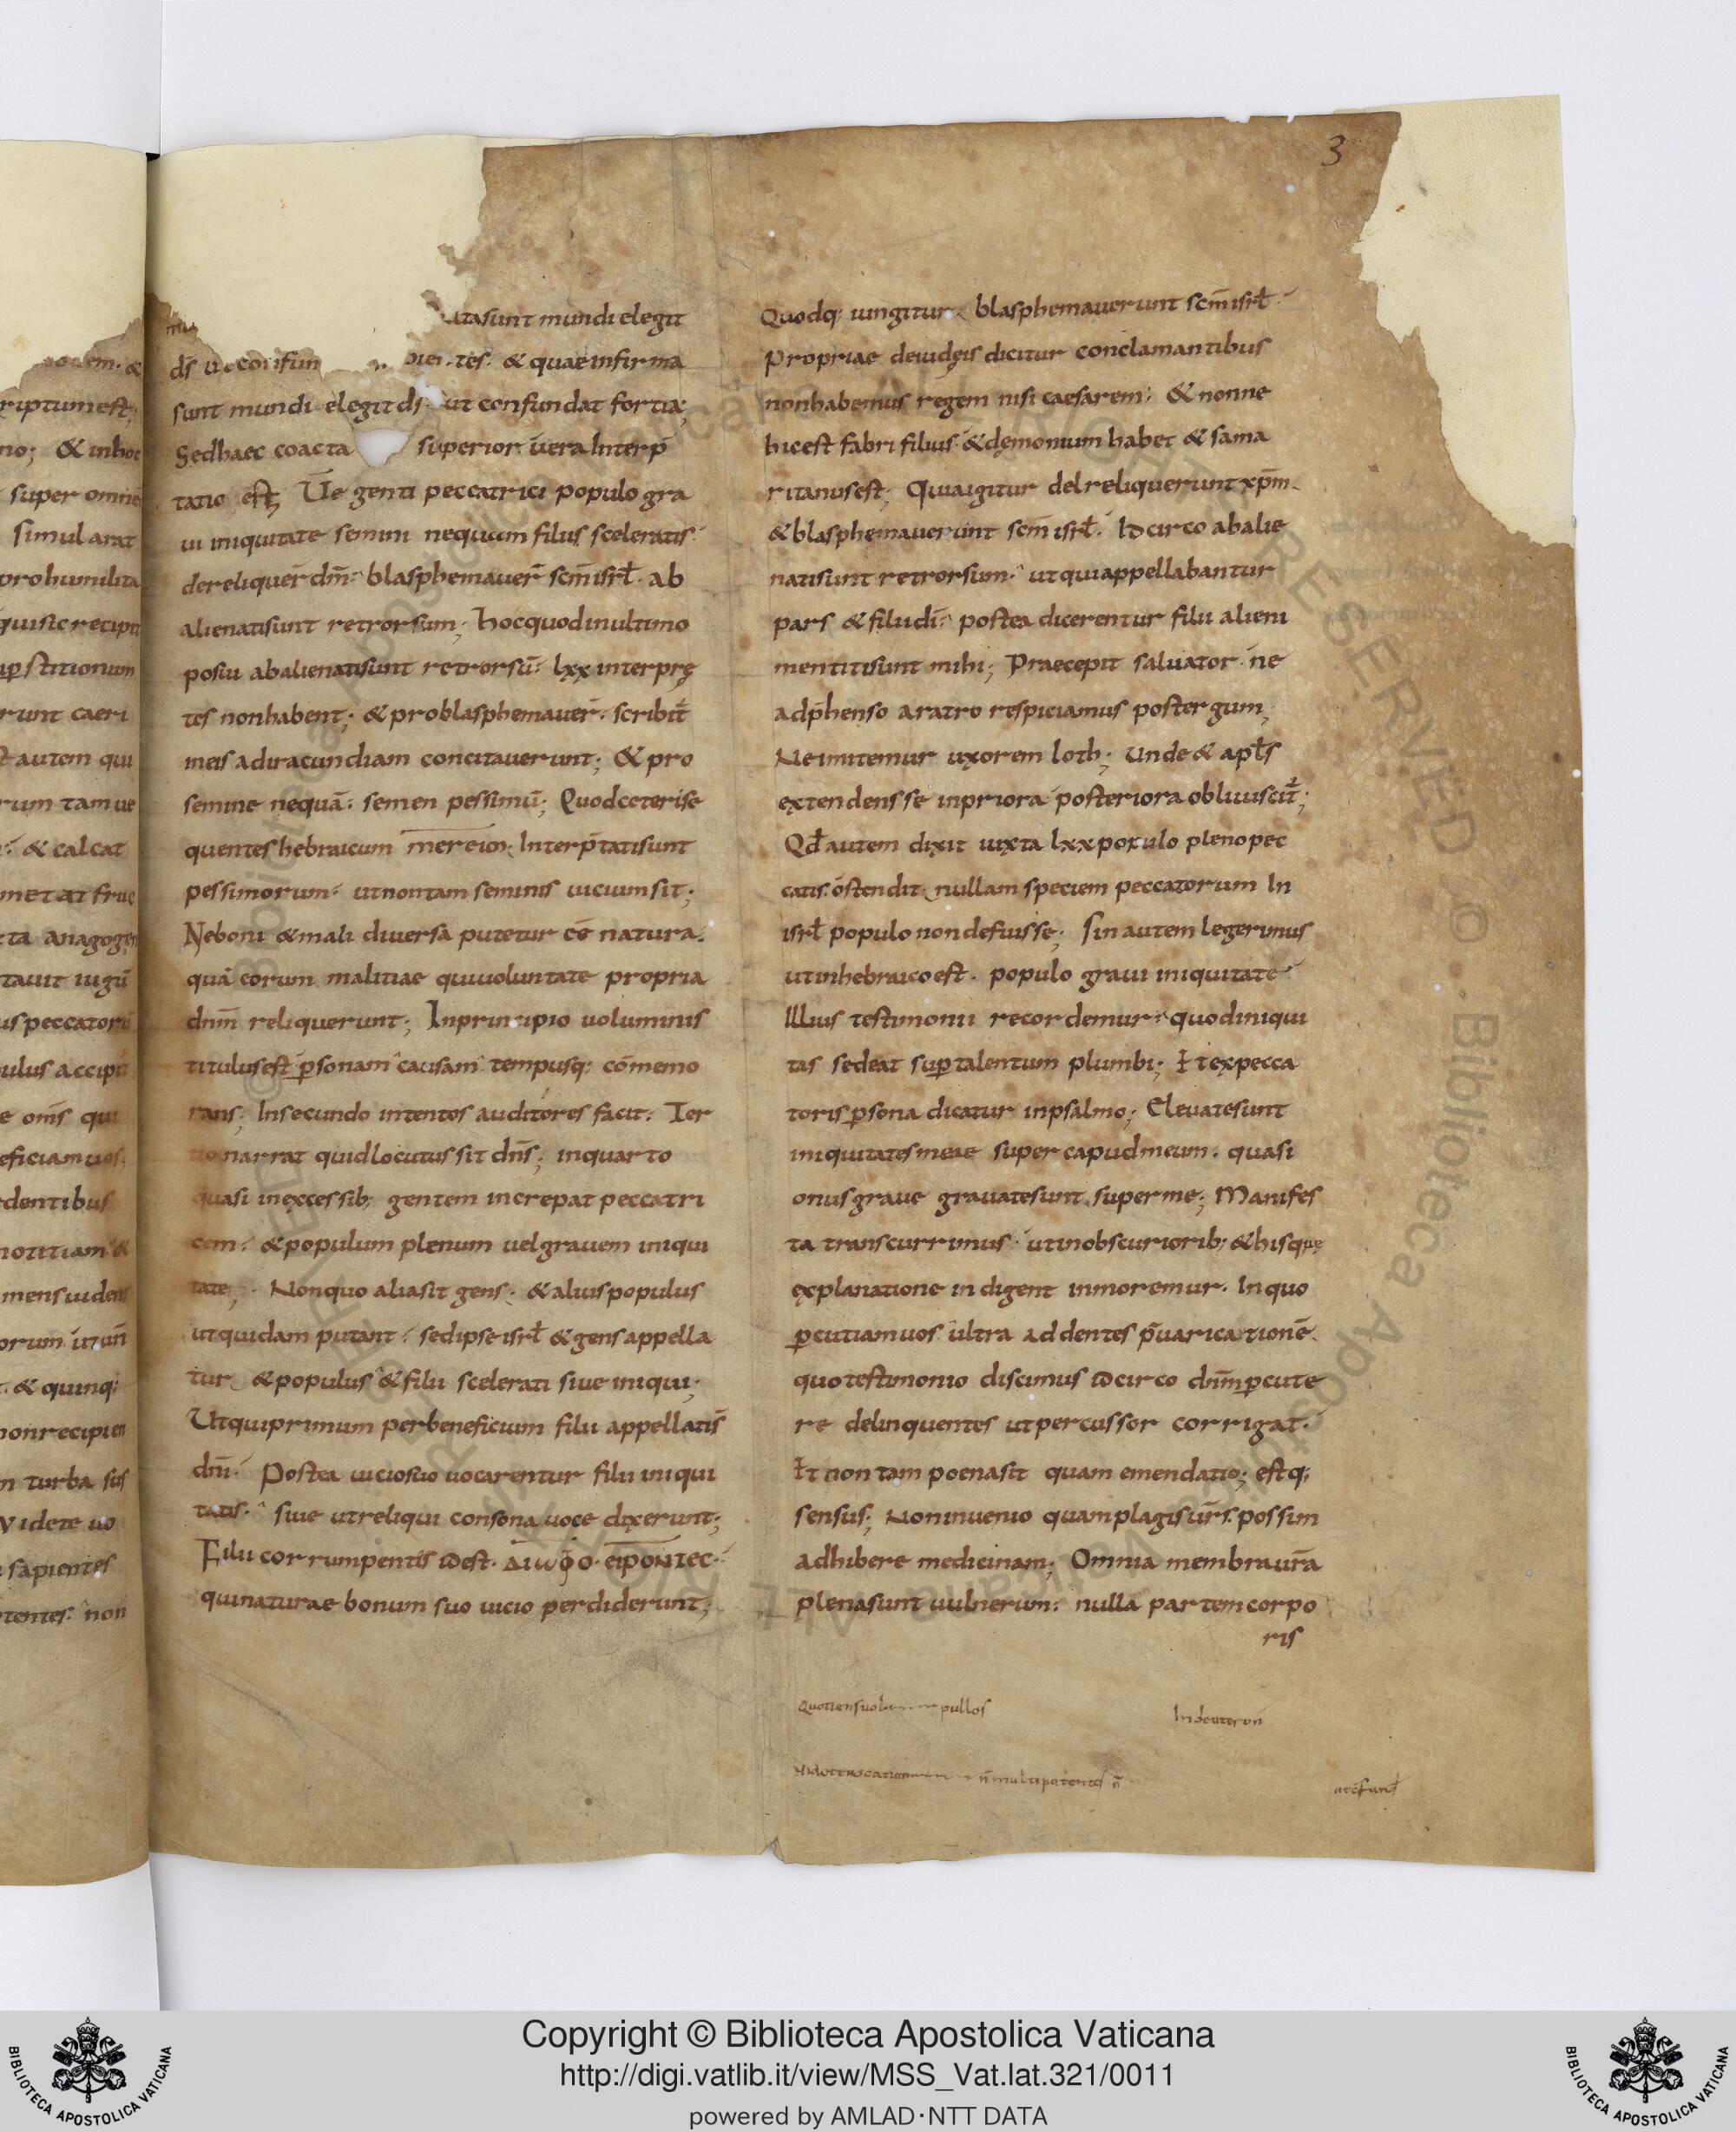 3
riptum est;
no; & in hoc
super omne
simul arat
pro humilita
quisic recipit
runt caeri
autem qui
rum tam ue
& calcat
ta anagogen
tauit iugū
us peccatorū
ulus accipit
e om̄s qui
eficiam uos;
dentibus
notitiam &
mens uidens
orum ut un̄
. & quinq;
non recipien
m turba sus
Videte uo
sapientes
tentes: non
ta sunt mundi elegit
d̄s confun tes. & quae infirma
sunt mundi elegit d̄s ut confundat fortia;
Sed haec coacta superior uera Interp̄
tatio est; Ue genti peccatrici populo gra
ui iniquitate semini nequam filiis sceleratis.
dereliquer̄ dn̄m. blasphemauer̄ sc̄m isrł. ab
alienati sunt retrorsum; hoc quod in ultimo
posui abalienati sunt retrorsū: lxx interprę
tes non habent; & pro blasphemauer̄. scribit̄
meis ad iracundiam concitauerunt; & pro
semine nequā. semen pessimū; Quod ceteri se
quentes hebraicum mereim. Interp̄tati sunt
pessimorum: ut non tam seminis uicium sit;
Ne boni & mali diuersa putetur eē natura.
quā eorum malitiae qui uoluntate propria
dn̄m reliquerunt; In principio uoluminis
titulus est p̱sonam causam tempusq; cōmemo
rans; In secundo intentos auditores facit. Ter
tio narrat quid locutus sit dn̄s; in quarto
quasi in excessib; gentem increpat peccatri
cem: & populum plenum uel grauem iniqui
tate; Non quo alia sit gens; & alius populus
ut quidam putant: sed ipse isrł & gens appella
tur & populus & filii scelerati siue iniqui;
Ut qui primum per beneficium filii appellatis̄
dn̄i. Postea uicio suo uocarentur filii iniqui
tatis. siue ut reliqui consona uoce dixerunt;
Filii corrumpentes id est.
qui naturae bonum suo uicio perdiderunt;
Quodq; iungitur blasphemauerunt sc̄m isrł.
Propriae de iudęis dicitur conclamantibus
non habemus regem nisi caesarem; & nonne
hic est fabri filius. & dęmonium habet & sama
ritanus est; Quia igitur delreliquerunt xp̄m.
& blasphemauerunt sc̄m isrł. Idcirco abalie
nati sunt retrorsum. ut qui appellabantur
pars & filii dī. postea dicerentur filii alieni
mentiti sunt mihi; Praecepit saluator ne
adp̄henso aratro respiciamus post ergum;
Ne imitemur uxorem loth; unde & apłs
extendens se in priora posteriora obliuiscit̄;
Qd̄ autem dixit iuxta lxx populo pleno pec
catis. ostendit nullam speciem peccatorum In
isrł populo non defuisse; Sin autem legerimus
ut in hebraico est. populo graui iniquitate
Illius testimonii recordemur. quod iniqui
tas sedeat sup̱ talentum plumbi; Et ex pecca
toris p̱sona dicatur in psalmo; Eleuate sunt
iniquitates meae super capud meum. quasi
onus graue grauate sunt super me; Manifes
ta transcurrimus. ut in obscuriorib; & his quę
explanatione indigent inmoremur. In quo
p̱cutiam uos ultra addentes p̄uaricationē
quo testimonio discimus idcirco dn̄m p̱cute
re delinquentes ut percussor corrigat.
Et non tam poena sit quam emendatio; estq;
sensus; Non inuenio quam plagis ur̄s possim
adhibere medicinam; Omnia membra ur̄a
plena sunt uulnerum: nullā partem corpo
ris
pullos
In deuteron̄
n̄ multi potentes n̄
Copyright © Biblioteca Apostolica Vaticana
http://digi.vatlib.it/view/MSS_Vat.lat.321/0011
powered by AMLAD·NTT DATA
BIBLIOTECA APOSTOLICA VATICANA
BIBLIOTECA APOSTOLICA VATICANA